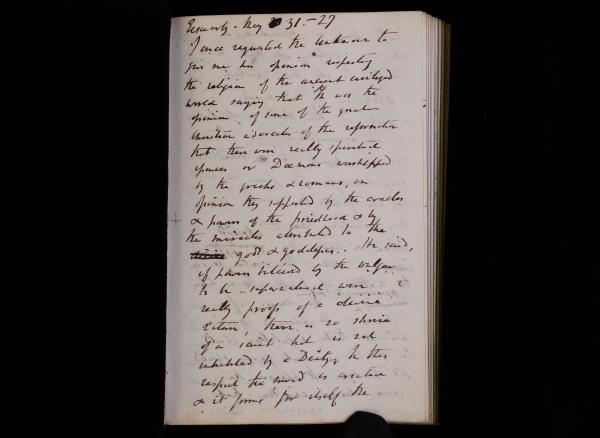 May 31.-27
I once requested the Unknown to
give me his opinion respecting
the religion of the ancient civilized
world saying that it was the
opinion of some of the great
Christian advocates of the reformation
that there were really spiritual
powers or Dæmons worshipped
by the greeks & romans, an
opinion they supported by the oracles
& powers of the priesthood & by
the miracles attributed to the
gods & goddesses. He said,
if powers believed by the vulgar
to be supernatural were
really proofs of a divine
nature, there is no shrine
of a saint that is not
inhabited by a Deity, In this
respect the mind is creative
& it forms for itself the